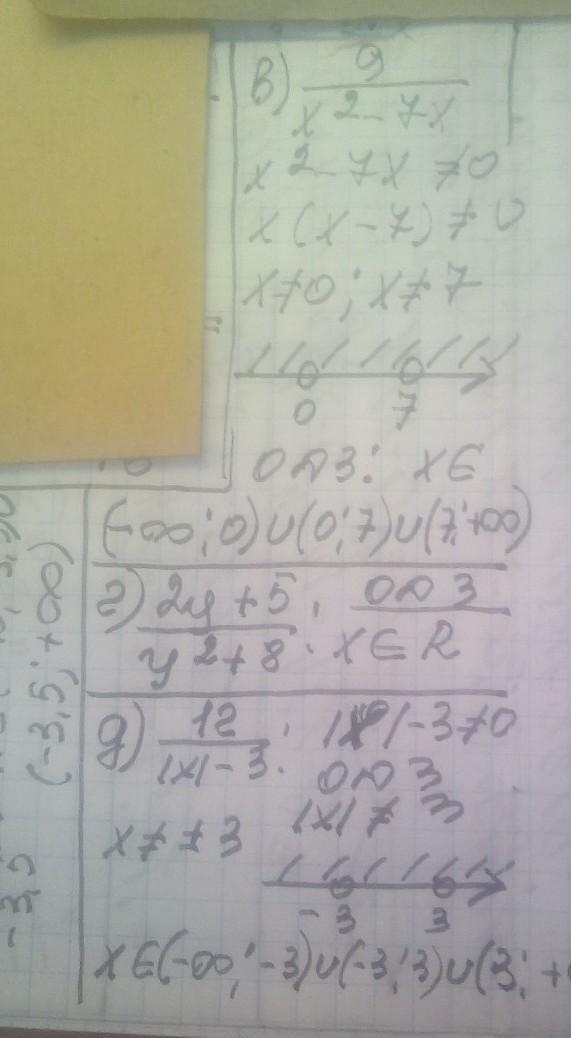 в) 9 / x² - 7x
x² - 7x ≠ 0
x(x - 7) ≠ 0
x ≠ 0; x ≠ 7
0 7
ОДЗ: x ∈
(-∞; 0) ∪ (0; 7) ∪ (7; +∞)
г) 2y + 5 / y² + 8 : ОДЗ
x ∈ R
д) 12 / |x| - 3 : |x| - 3 ≠ 0
ОДЗ
|x| ≠ 3
x ≠ ±3
-3 3
x ∈ (-∞; -3) ∪ (-3; 3) ∪ (3; +
(-3,5; +∞)
-3,5